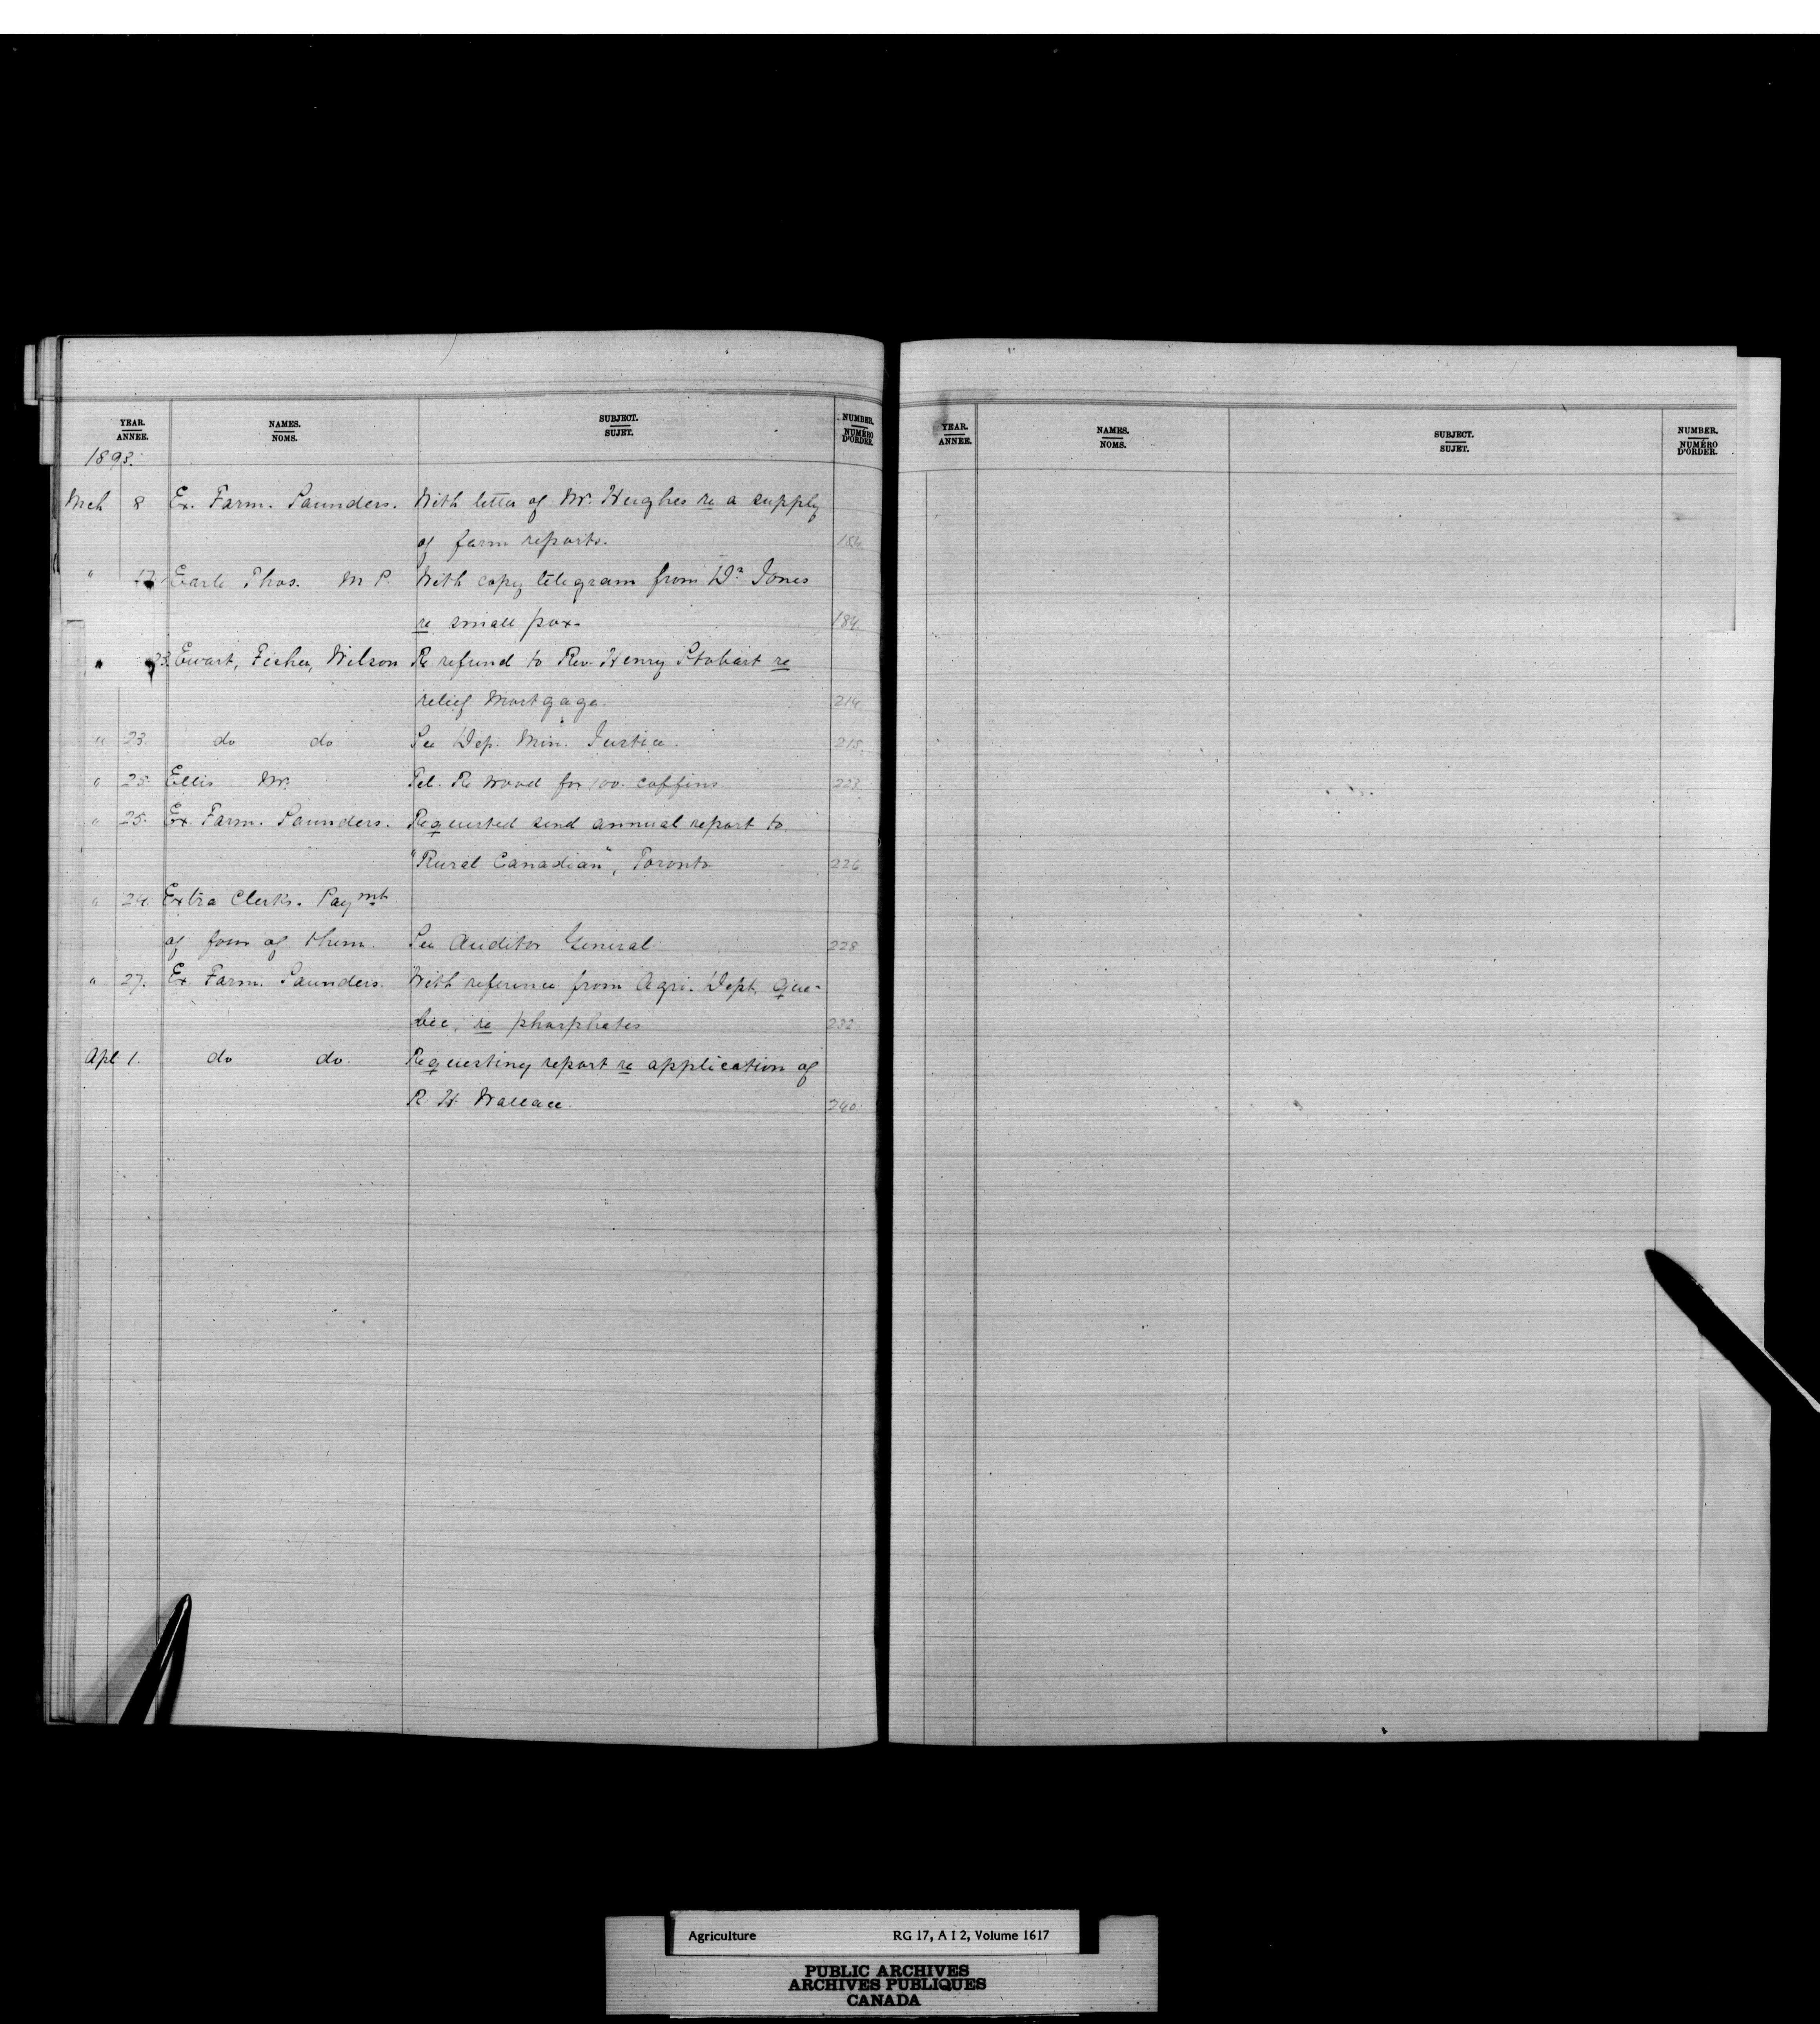 YEAR. NAMES. SUBJECT. NUMBER.
ANNEE. NOMS. SUJET. NUMÉRO D'ORDER.
1893.
Mch 8 Ex. Farm. Saunders. With letter of Mr. Hughes re a supply
of farm reports. 154
" 17. Earle Thos. M P. With copy telegram from Dr Jones
re small pox. 184.
" 23. Ewart, Fisher, Wilson Re refund to Rev. Henry Stobart re
relief Mortgage. 214
" 23. do do See Dep. Min. Justice. 215.
" 25. Ellis Mr. Tel. Re wood for 100 coffins 223.
" 25. Ex. Farm. Saunders. Requested send annual report to
"Rural Canadian", Toronto 226
" 24. Extra Clerks. Paymt.
of four of them. See Auditor General 228.
" 27. Ex Farm. Saunders. With reference from Agri. Dept, Que-
bec, re phosphates 232.
Apl 1. do do. Requesting report re application of
R. H. Wallace. 240.
YEAR. NAMES. SUBJECT. NUMBER.
ANNEE. NOMS. SUJET. NUMÉRO D'ORDER.
Agriculture RG 17, A I 2, Volume 1617
PUBLIC ARCHIVES
ARCHIVES PUBLIQUES
CANADA